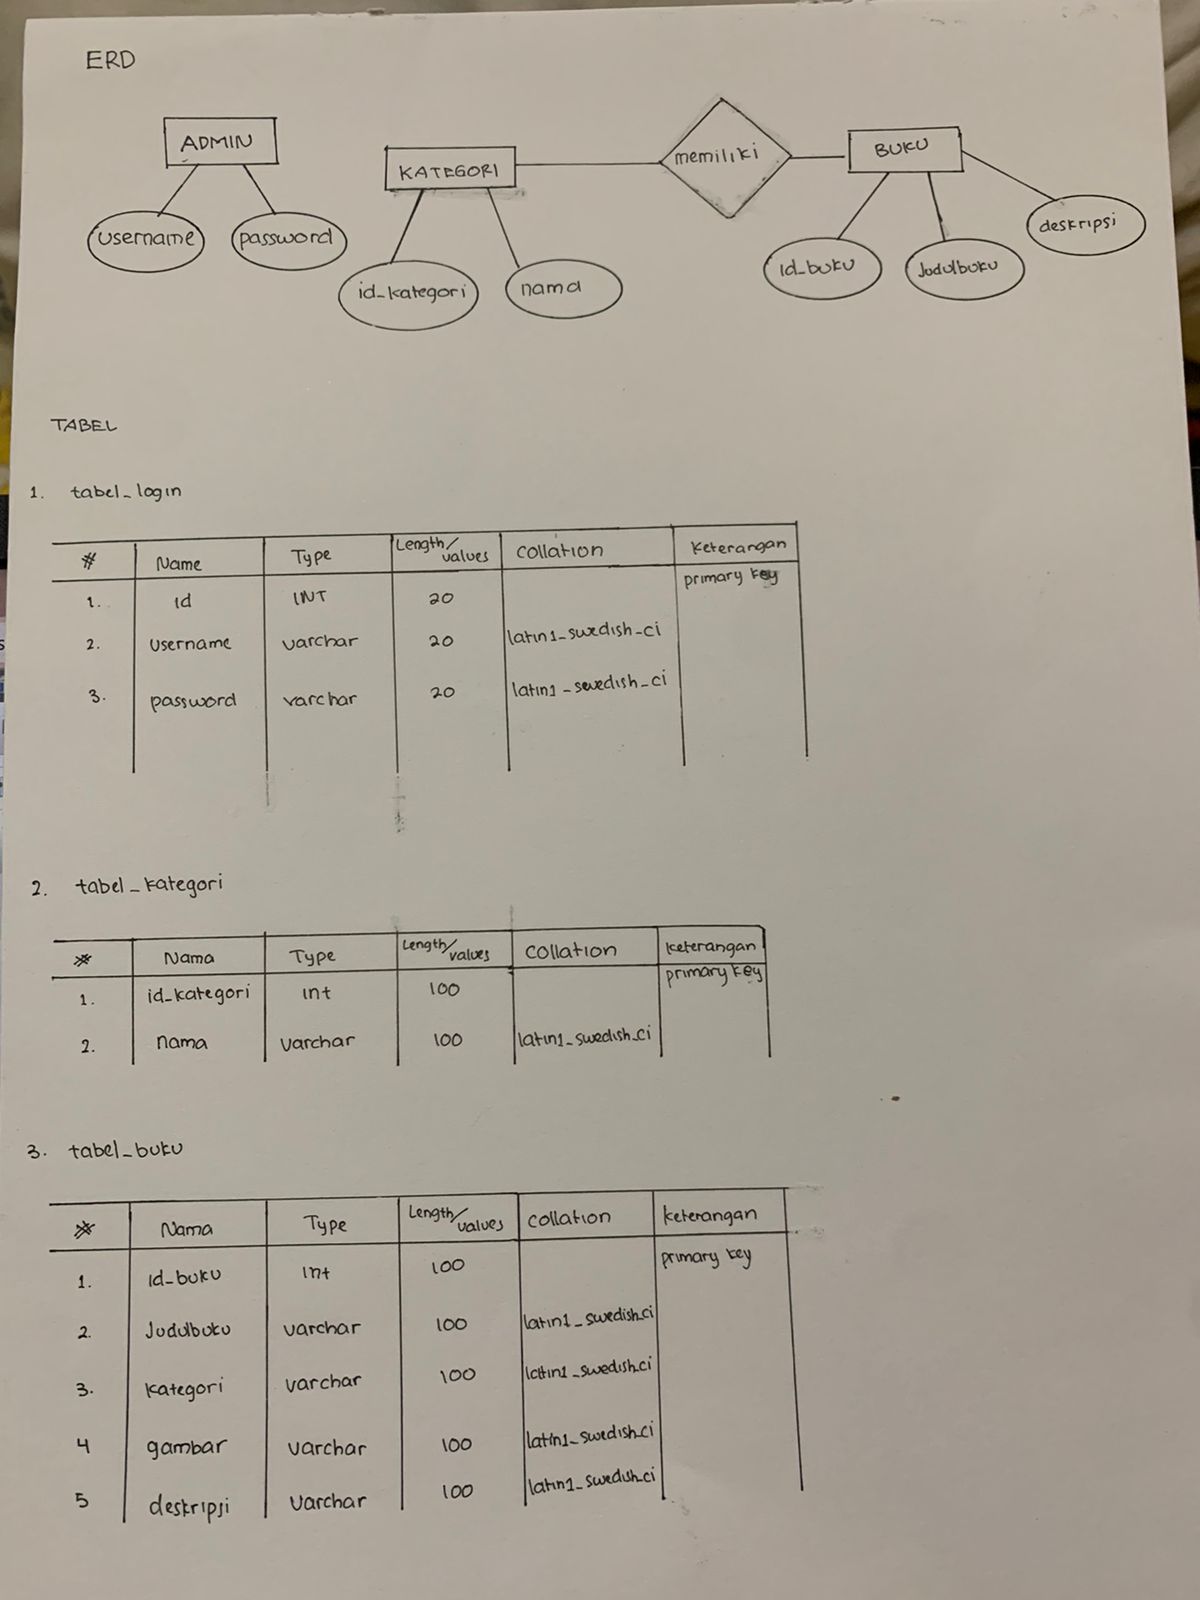 ERD
ADMIN
KATEGORI
memiliki
BUKU
username
password
id_kategori
nama
id_buku
Judulbuku
deskripsi
TABEL
1. tabel_login
# Name Type Length/values Collation Keterangan
1. id INT 20 primary key
2. username varchar 20 latin1_swedish_ci
3. password varchar 20 latin1_swedish_ci
2. tabel_kategori
# Nama Type Length/values Collation keterangan
1. id_kategori int 100 primary key
2. nama varchar 100 latin1_swedish_ci
3. tabel_buku
# Nama Type Length/values Collation keterangan
1. id_buku int 100 primary key
2. Judulbuku varchar 100 latin1_swedish_ci
3. kategori varchar 100 latin1_swedish_ci
4 gambar varchar 100 latin1_swedish_ci
5 deskripsi varchar 100 latin1_swedish_ci